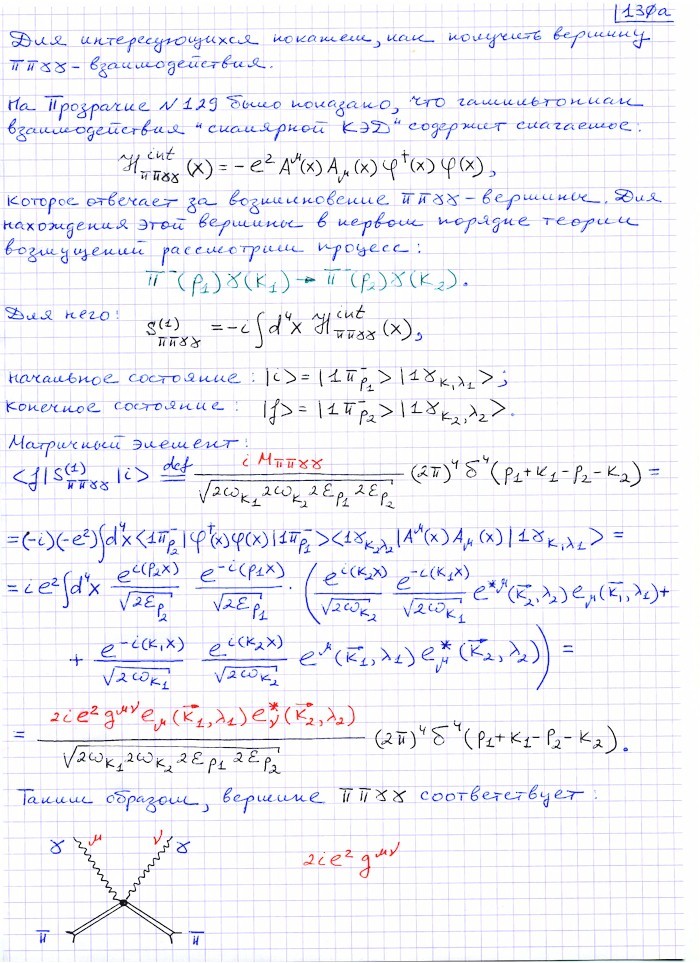 130a
Для интересующихся покажем, как получить вершину
ππγγ - взаимодействия.
На Прозрачке N129 было показано, что гамильтониан
взаимодействия "скалярной КЭД" содержит слагаемое:
ℋ^{int}_{ππγγ}(x) = -e² A^μ(x) A_μ(x) φ^†(x) φ(x),
которое отвечает за возникновение ππγγ - вершины. Для
нахождения этой вершины в первом порядке теории
возмущений рассмотрим процесс:
π⁻(p₁) γ(k₁) → π⁻(p₂) γ(k₂).
Для него: S^{(1)}_{ππγγ} = -i ∫d⁴x ℋ^{int}_{ππγγ}(x),
начальное состояние: |i> = |1π⁻_{p₁}> |1γ_{k₁,λ₁}>;
конечное состояние: |f> = |1π⁻_{p₂}> |1γ_{k₂,λ₂}>.
Матричный элемент:
<f|S^{(1)}_{ππγγ}|i> \overset{def}{=} \frac{i M_{ππγγ}}{\sqrt{2ω_{k₁} 2ω_{k₂} 2ε_{p₁} 2ε_{p₂}}} (2π)⁴ δ⁴(p₁+k₁-p₂-k₂) =
= (-i)(-e²)∫d⁴x <1π⁻_{p₂}|φ^†(x)φ(x)|1π⁻_{p₁}> <1γ_{k₂λ₂}|A^μ(x) A_μ(x)|1γ_{k₁,λ₁}> =
= ie²∫d⁴x \frac{e^{i(p₂x)}}{\sqrt{2ε_{p₂}}} \frac{e^{-i(p₁x)}}{\sqrt{2ε_{p₁}}} · ( \frac{e^{i(k₂x)}}{\sqrt{2ω_{k₂}}} \frac{e^{-i(k₁x)}}{\sqrt{2ω_{k₁}}} e^{*μ}(\vec{k₂},λ₂) e_μ(\vec{k₁},λ₁) +
+ \frac{e^{-i(k₁x)}}{\sqrt{2ω_{k₁}}} \frac{e^{i(k₂x)}}{\sqrt{2ω_{k₂}}} e^μ(\vec{k₁},λ₁) e^*_μ(\vec{k₂},λ₂) ) =
= \frac{2ie² g^{μν} e_μ(\vec{k₁},λ₁) e^*_ν(\vec{k₂},λ₂)}{\sqrt{2ω_{k₁} 2ω_{k₂} 2ε_{p₁} 2ε_{p₂}}} (2π)⁴ δ⁴(p₁+k₁-p₂-k₂).
Таким образом, вершине ππγγ соответствует:
γ μ ν γ
2ie² g^{μν}
π π